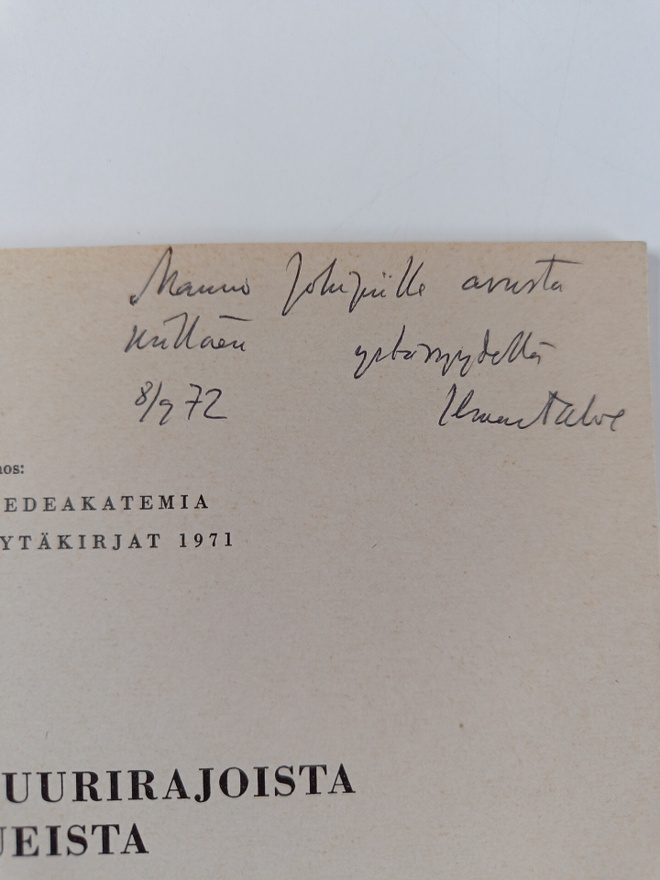 Mauno Jokipiille avusta
kiittäen ystävyydellä
8/9 72 Ilmar Talve
nos:
EDEAKATEMIA
YTÄKIRJAT 1971
UURIRAJOISTA
UEISTA